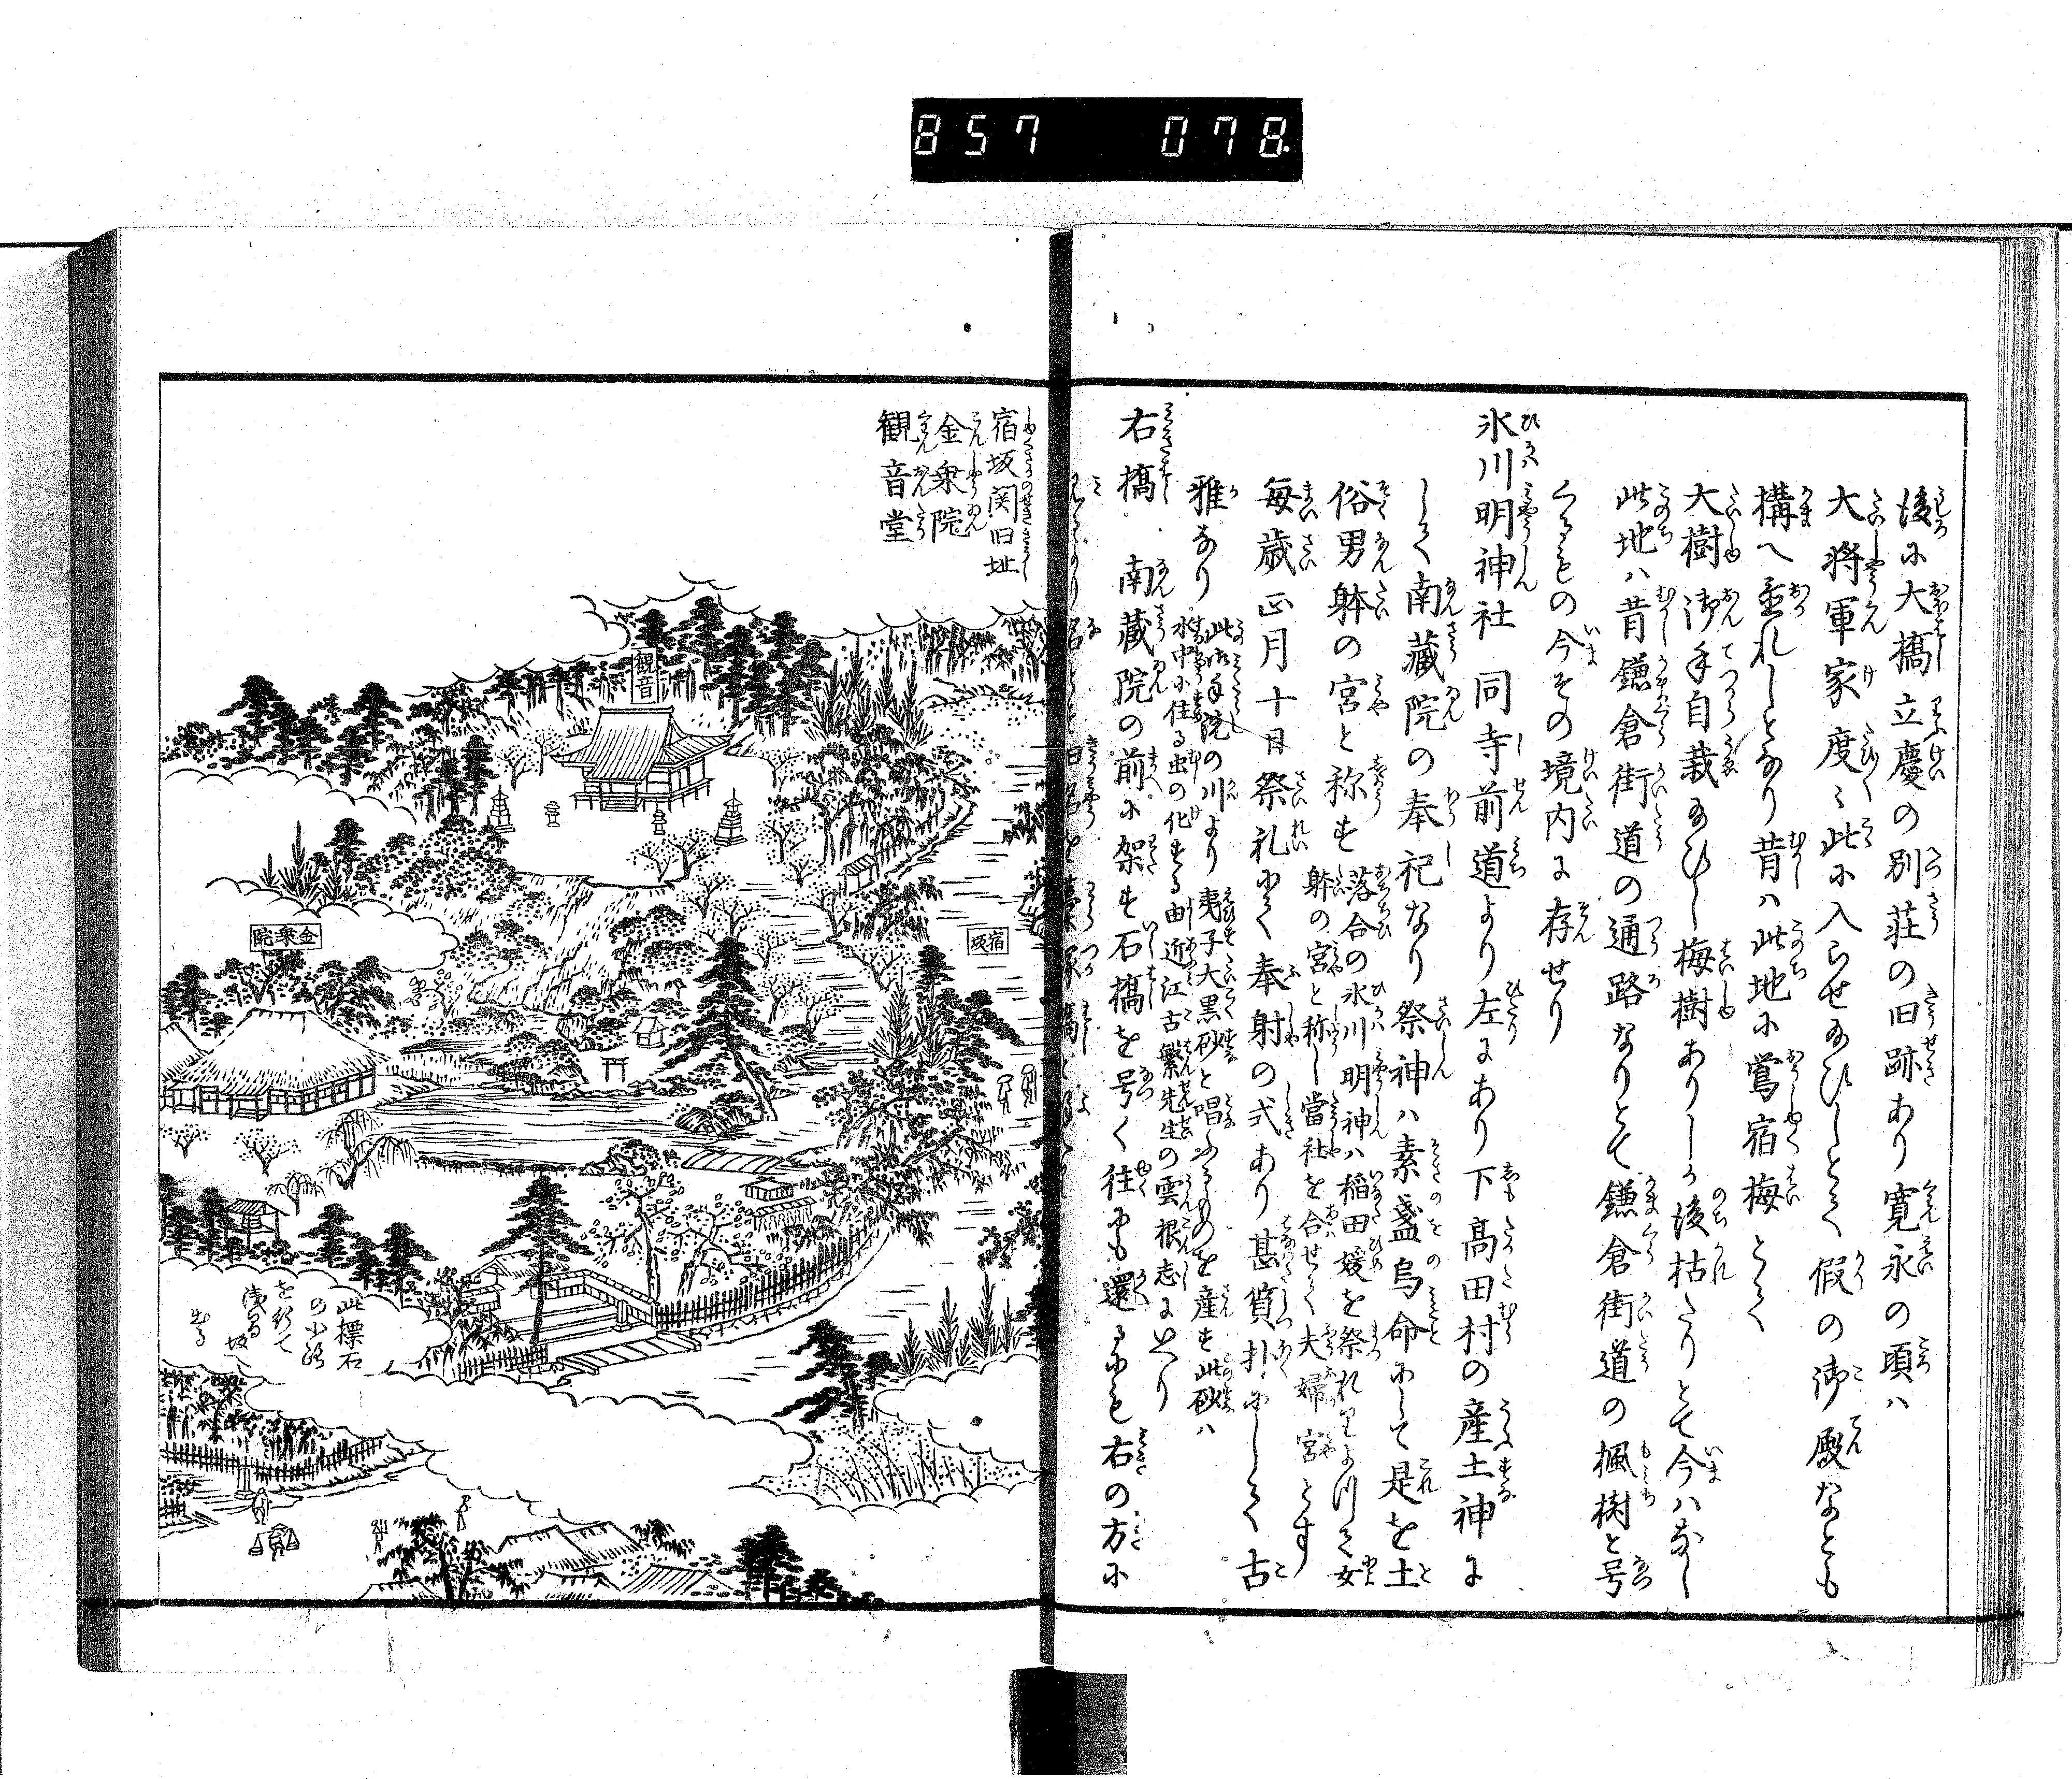 857 078
後に大橋立慶の別荘の旧跡あり寛永の頃ハ
大將軍家度々此に入らせ給ひしとて假の御殿なとも
構へ置れしとなり昔ハ此地に鶯宿梅とて
大樹御手自栽給ひし梅樹ありしか後枯たりとて今ハなし
此地ハ昔鎌倉街道の通路なりとて鎌倉街道の楓樹と号
くるもの今その境内に存せり
氷川明神社 同寺前道より左にあり下髙田村の産土神に
して南藏院の奉祀なり祭神ハ素盞烏命にして是を土
俗男躰の宮と称す
落合の氷川明神ハ稲田媛を祭れりよつて女
躰の宮と称し當社を合せて夫婦宮とす
毎歳正月十日祭礼にて奉射の式あり甚質朴にして古
雅なり
此御手洗の川より夷子大黒砂と唱ふるものを産す此砂ハ
水中に住る虫の化する由近江古繁先生の雲根志に出たり
右橋 南藏院の前に架す石橋を号く往にも還るにも右の方に
宿坂関旧址
金乗院
観音堂
観音
金乗院
宿坂
此標石
の小路
を行て
清戸坂
出る